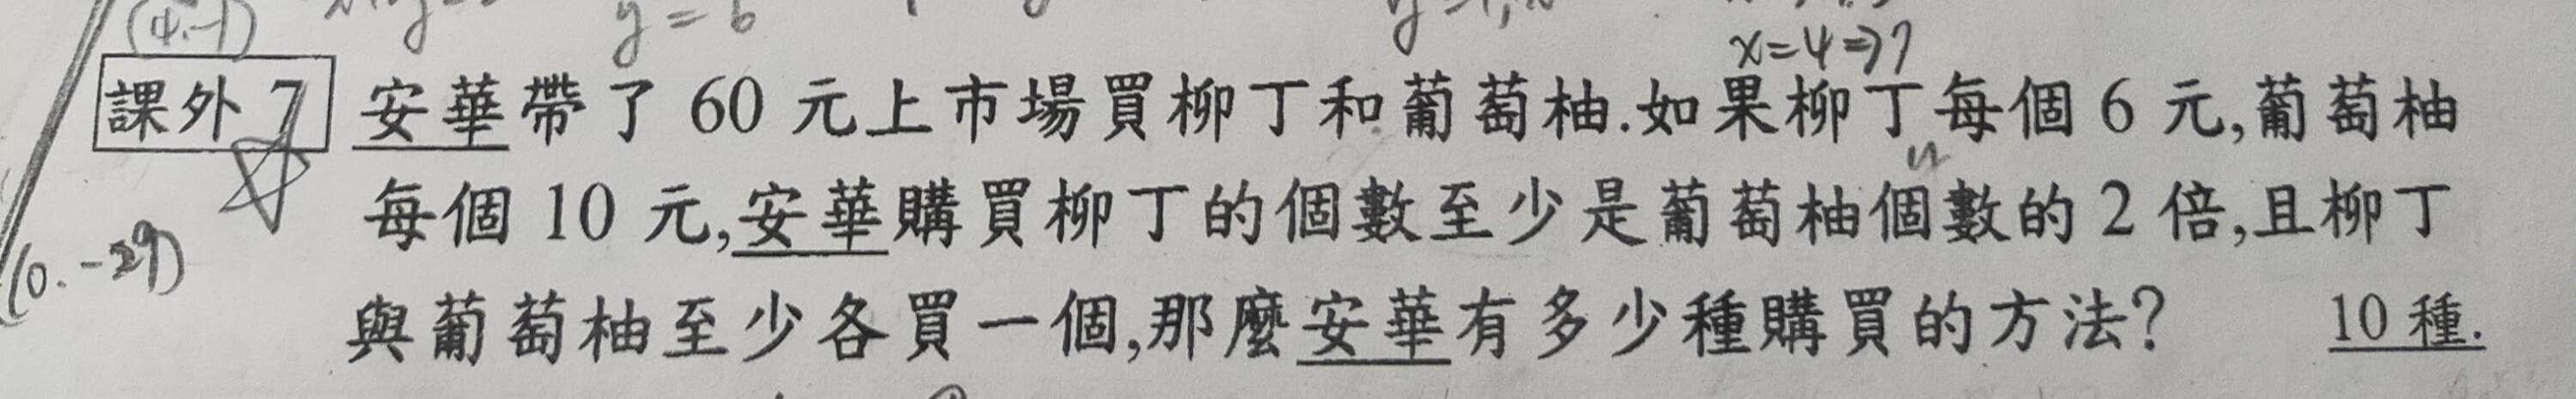 (4.-1)
y=6
x=4⇒7
課外 7 安華帶了 60 元上市場買柳丁和葡萄柚.如果柳丁每個 6 元,葡萄柚
每個 10 元,安華購買柳丁的個數至少是葡萄柚個數的 2 倍,且柳丁
(0.-29)
與葡萄柚至少各買一個,那麼安華有多少種購買的方法? 10 種.